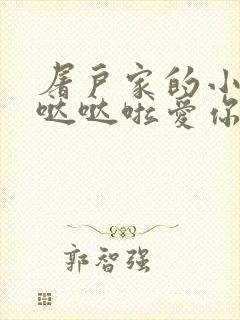 屠戶家的小
哒哒啦爱你
郭智强